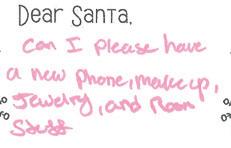 Dear Santa,
Can I please have
a new phone, makeup,
Jewelry, and Room
Stuff